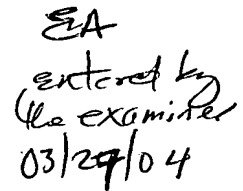 EA
entered by
the examiner
03/29/04